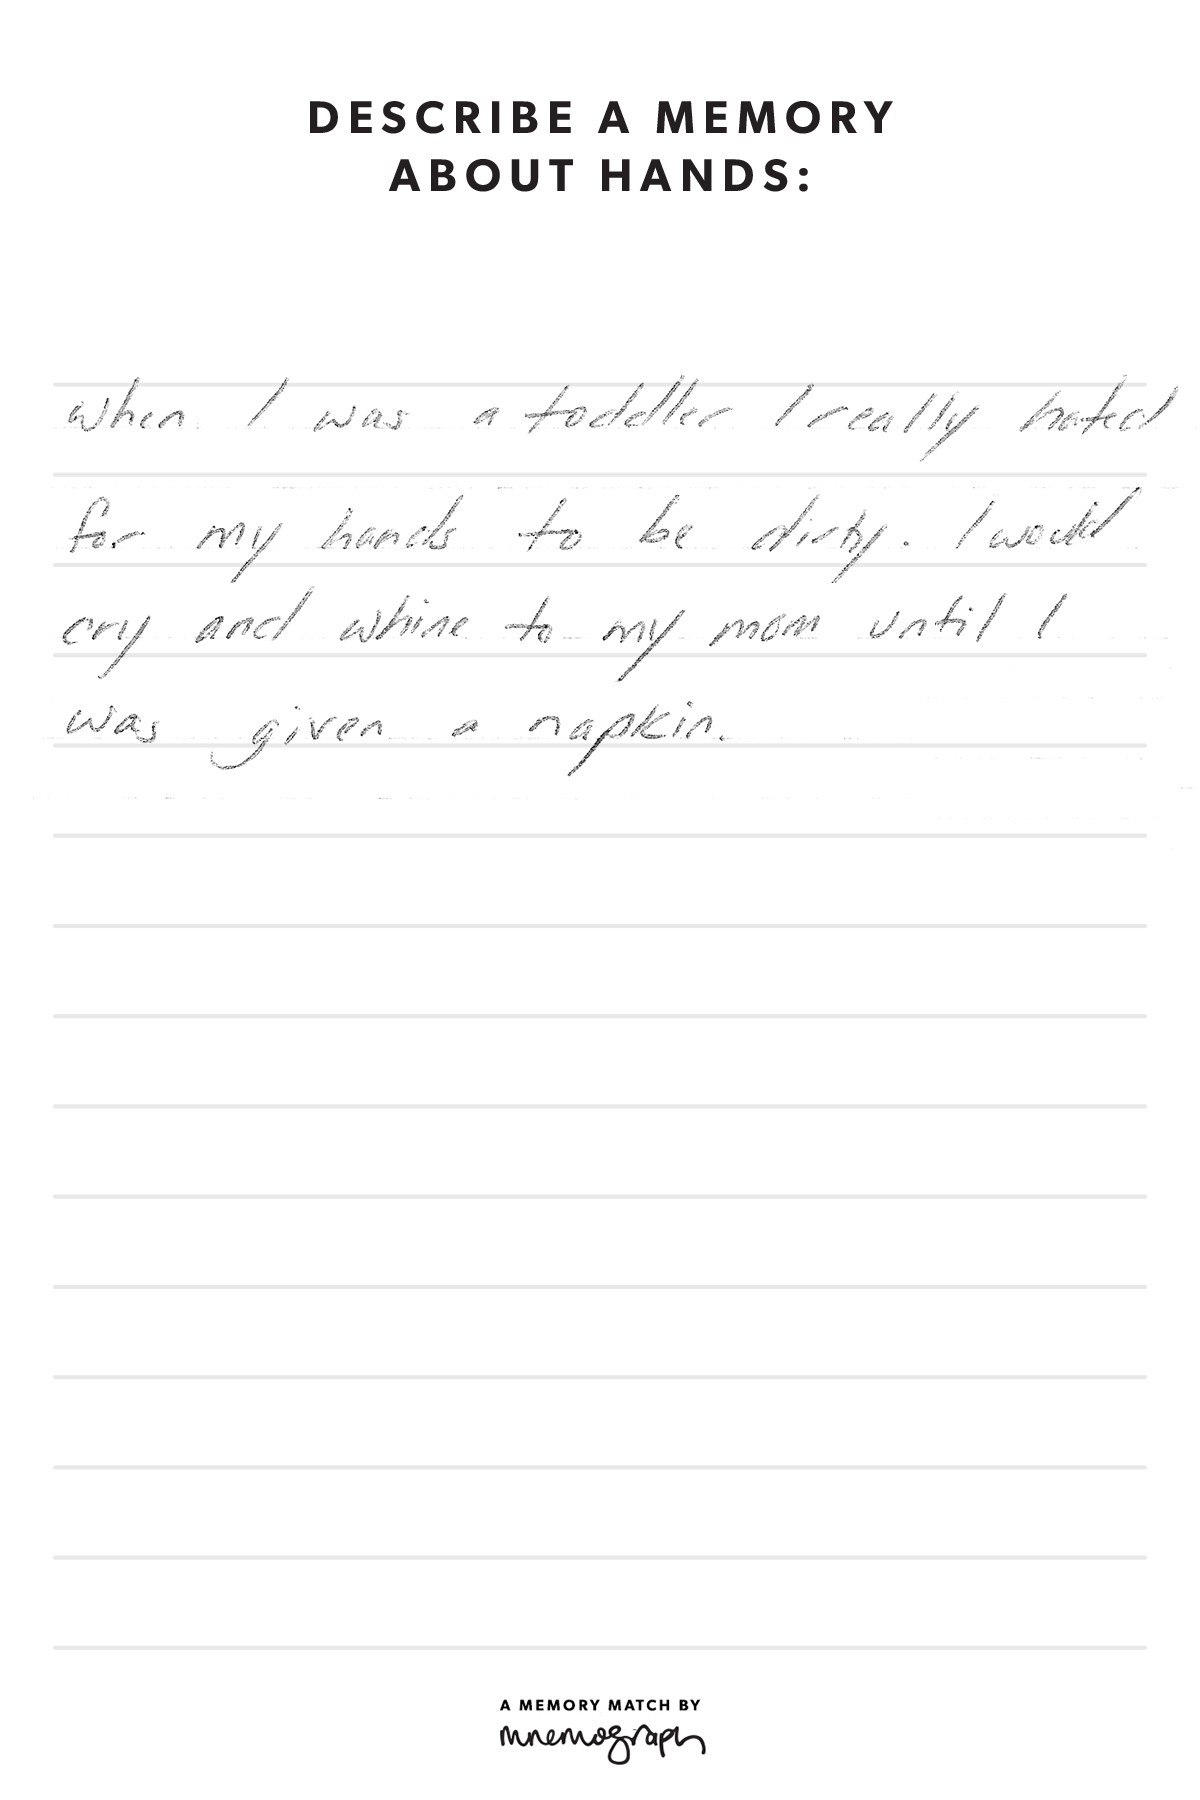 DESCRIBE A MEMORY
ABOUT HANDS:
when I was a toddler I really hated
for my hands to be dirty. I would
cry and whine to my mom until I
was given a napkin.
A MEMORY MATCH BY
mnemograph